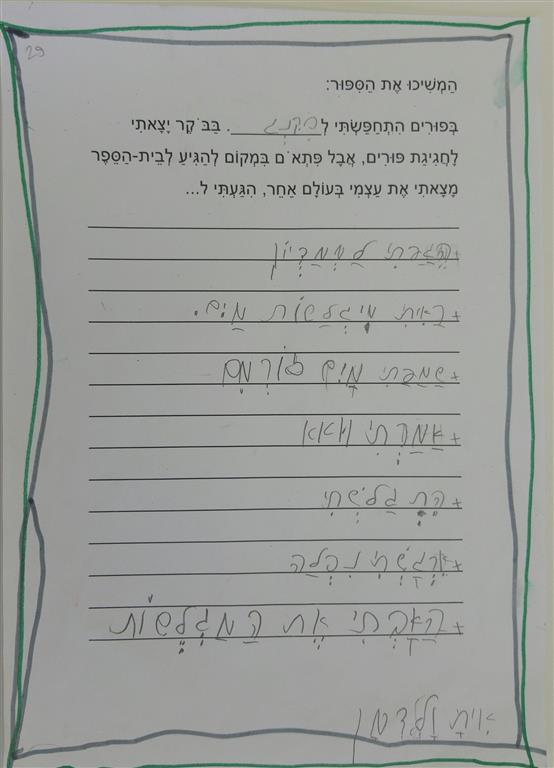 29
הַמְשִׁיכוּ אֶת הַסִּיפּוּר:
בְּפוּרִים הִתְחַפַּשְׂתִּי לְ______. בַּבֹּקֶר יָצָאתִי
לַחֲגִיגַת פּוּרִים, אֲבָל פִּתְאֹם בִּמְקוֹם לְהַגִּיעַ לְבֵית-הַסֵּפֶר
מָצָאתִי אֶת עַצְמִי בְּעוֹלָם אַחֵר, הִגַּעְתִּי ל...
+ הִגַּעתִּי לַמֵּמַדְיוֹן
+ רַאִיתִ מִיגְלַשוֹת מַים.
+ שַמַעתִּי מָיִם זוֹרְמִם
+ אַמַרְתִּי וואא
+ גַלַשְתִּי
+ נִפְלָה
+ אֶת הַמַגְלֵשוֹת